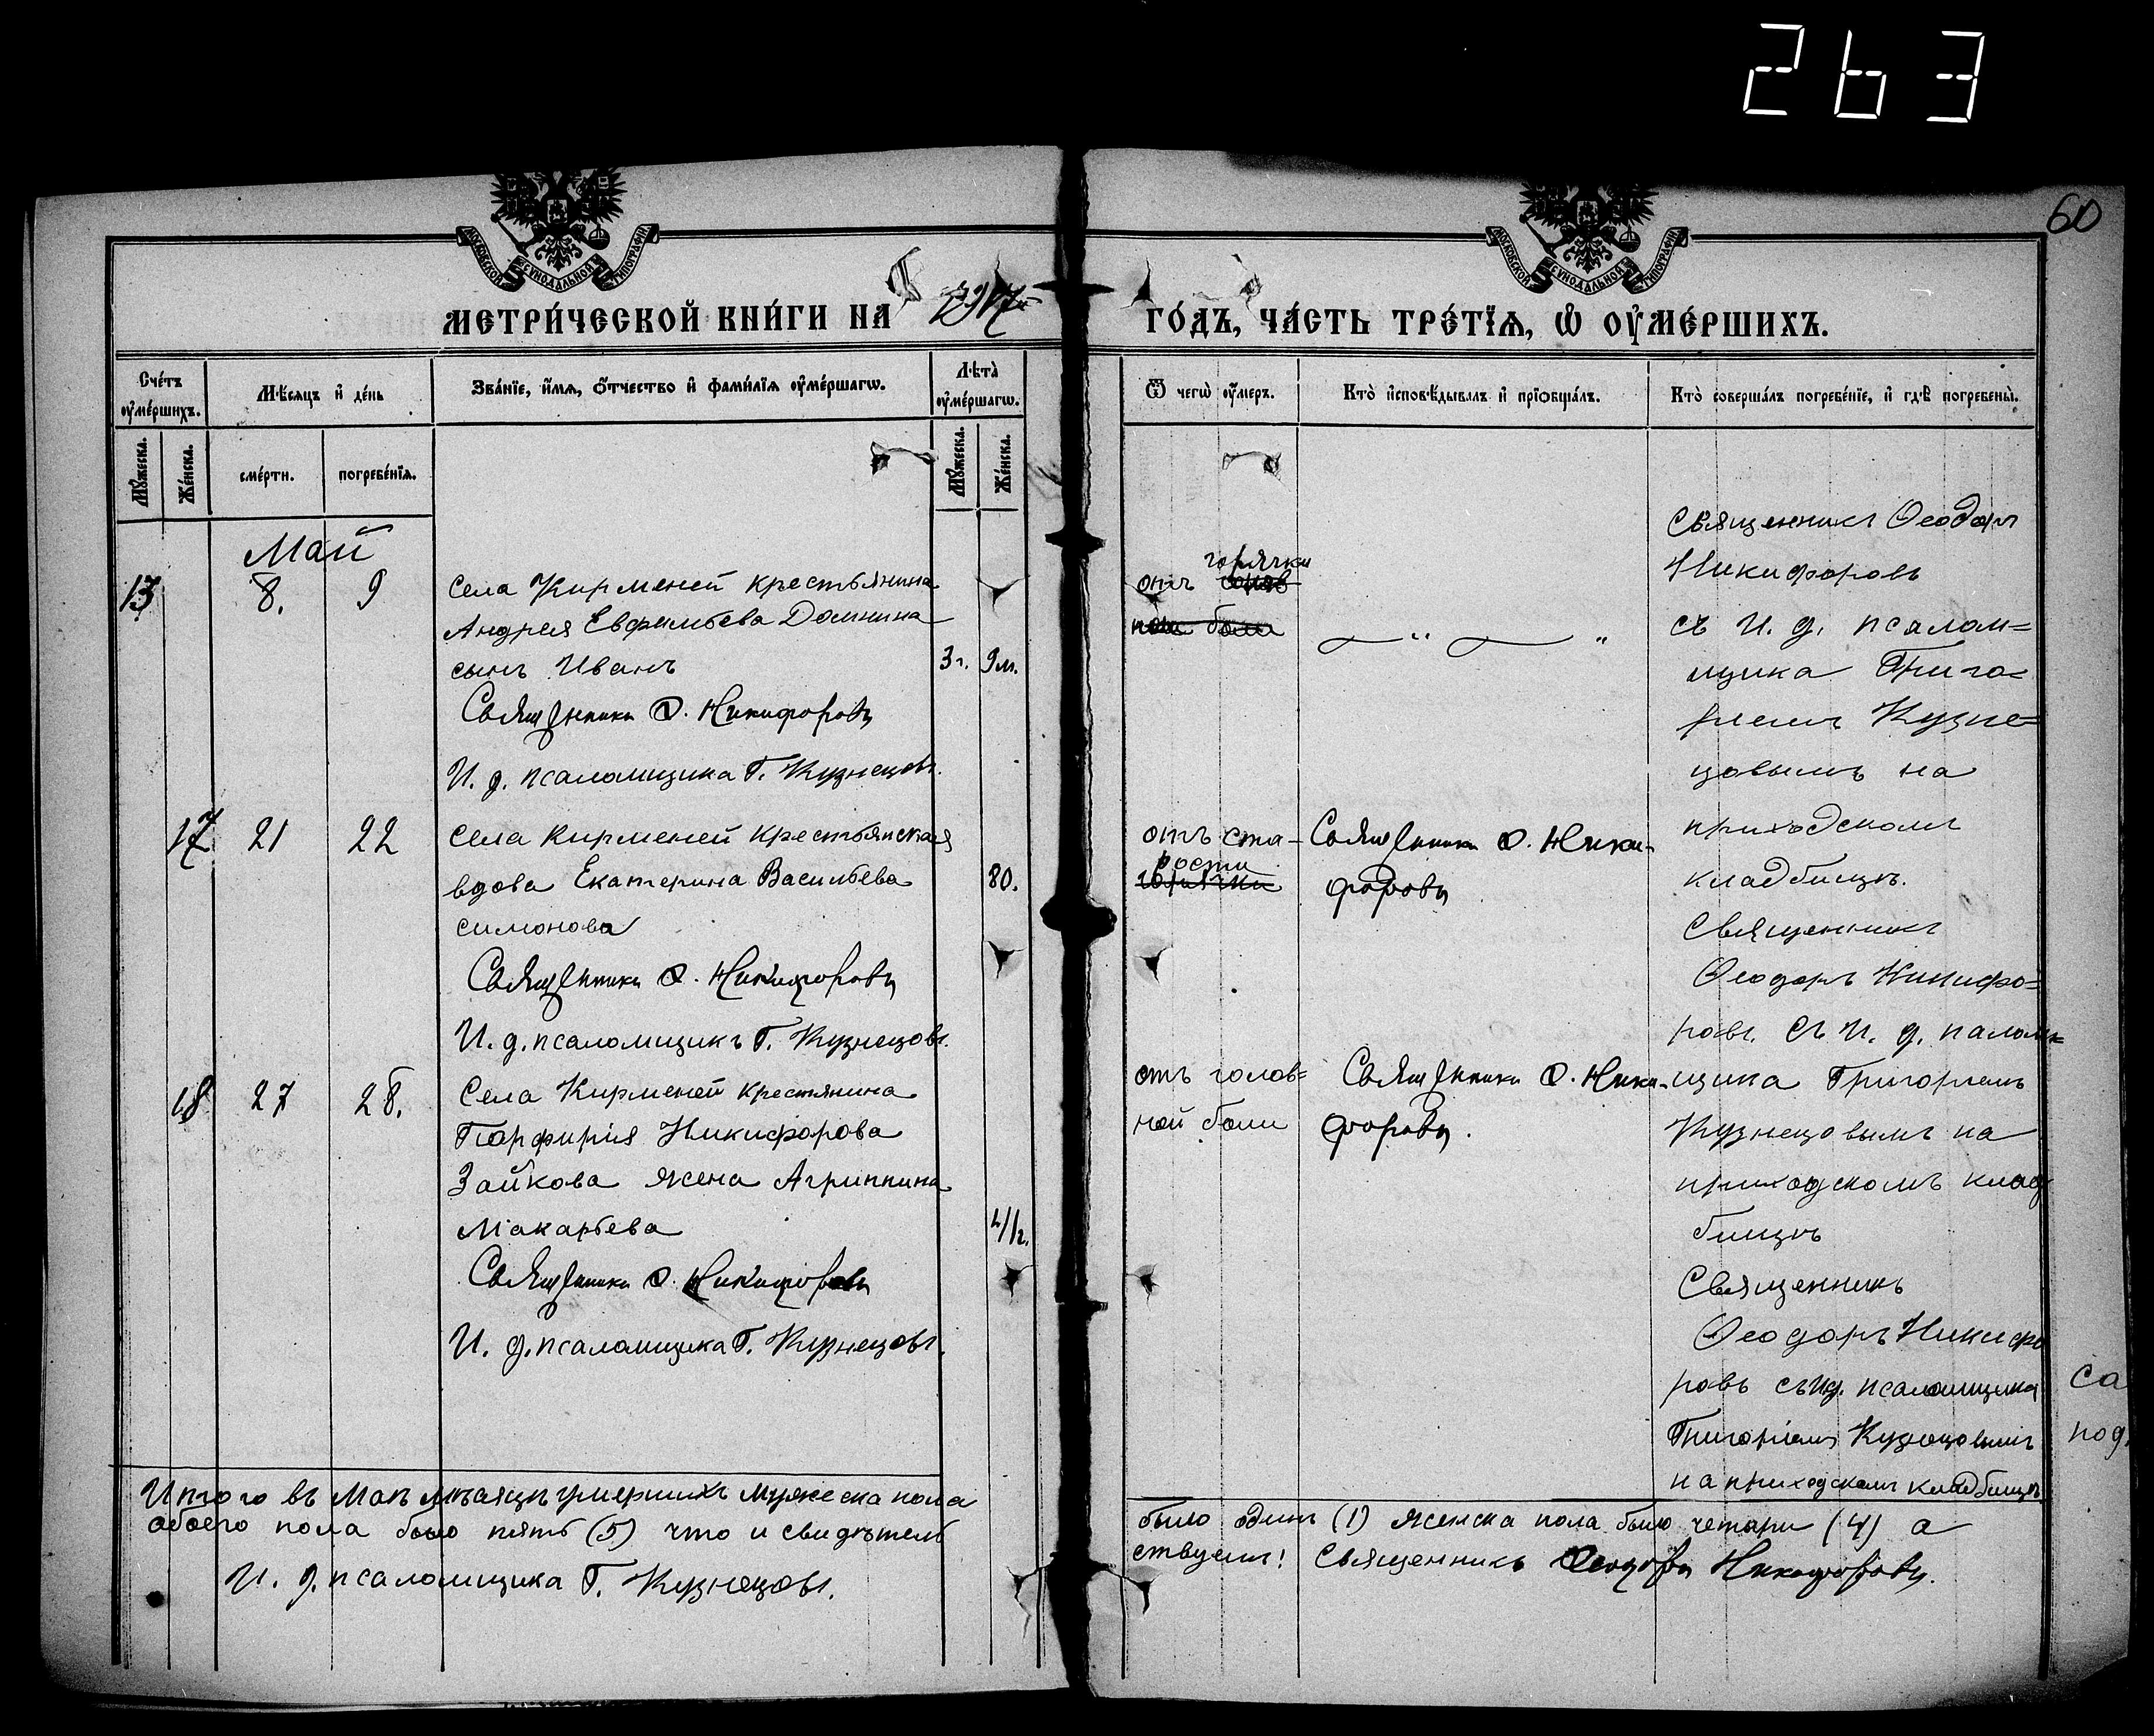 263
60
МОСКОВСКОЙ СѴНОДАЛЬНОЙ ТИПОГРАФІИ
МОСКОВСКОЙ СѴНОДАЛЬНОЙ ТИПОГРАФІИ
МЕТРИ́ЧЕСКОЙ КНИ́ГИ НА 1917й
ГО́ДЪ, ЧА́СТЬ ТРЕ́ТЇѦ, Ѡ҆ ОУ҆МЕ́РШИХЪ.
Сче́тъ оу҆ме́ршихъ.
Мѣ́сѧцъ и҆ де́нь
Зва́нїе, и҆́мѧ, ѻ҆́тчество и҆ фами́лїѧ оу҆ме́ршагѡ.
Лѣ́та оу҆ме́ршагѡ.
Ѿ чегѡ̀ оу҆́меръ.
Кто̀ и҆сповѣ́дывалъ и҆ прїѻбща́лъ.
Кто̀ соверша́лъ погребе́нїе, и҆ гдѣ̀ погребены̀.
Мꙋ́жеска.
Же́нска.
сме́рти.
погребе́нїѧ.
Мꙋ́жеска.
Же́нска.
Май
13
8.
9
Села Кирменей крестьянина
Андрея Евфимьева Домнина
сынъ Иванъ
3 г. 9 м.
Священникъ Ѳ. Никифоровъ
И. д. псаломщика Г. Кузнецовъ.
отъ горячки
ной боли
— " — "
Священникъ Ѳеодоръ
Никифоровъ
съ И. д. псалом=
щика Григо=
ріемъ Кузне=
цовымъ на
приходскомъ
кладбищѣ.
17
21
22
Села Кирменей крестьянская
вдова Екатерина Васильева
Симонова
80.
Священникъ Ѳ. Никифоровъ
И. д. псаломщикъ Г. Кузнецовъ.
отъ ста-
рости
горячки
Священникъ Ѳ. Ники-
форовъ
Священникъ
Ѳеодоръ Никифо=
ровъ. Съ И. д. палом-
щика Григоріемъ
Кузнецовымъ на
приходскомъ клад
бищѣ
18
27
28.
Села Кирменей крестянина
Парфирія Никифорова
Зайкова жена Агриппина
Макарьева
41 г.
Священникъ Ѳ. Никифоровъ
И. д. псаломщика Г. Кузнецовъ.
отъ голов=
ной боли
Священникъ Ѳ. Ники-
форовъ.
Священникъ
Ѳеодоръ Никифо
ровъ съ ид. псаломщика
Григоріемъ Кузнецовымъ
на приходскомъ кладбищѣ
са
под
Итого въ Маѣ мѣсяцѣ умершихъ мужеска пола
было одинъ (1) женска пола было четыри (4) а
обоего пола было пять (5) что и свидѣтель
ствуемъ! Священникъ Ѳеодоръ Никифоровъ.
И. д. псаломщика Г. Кузнецовъ.